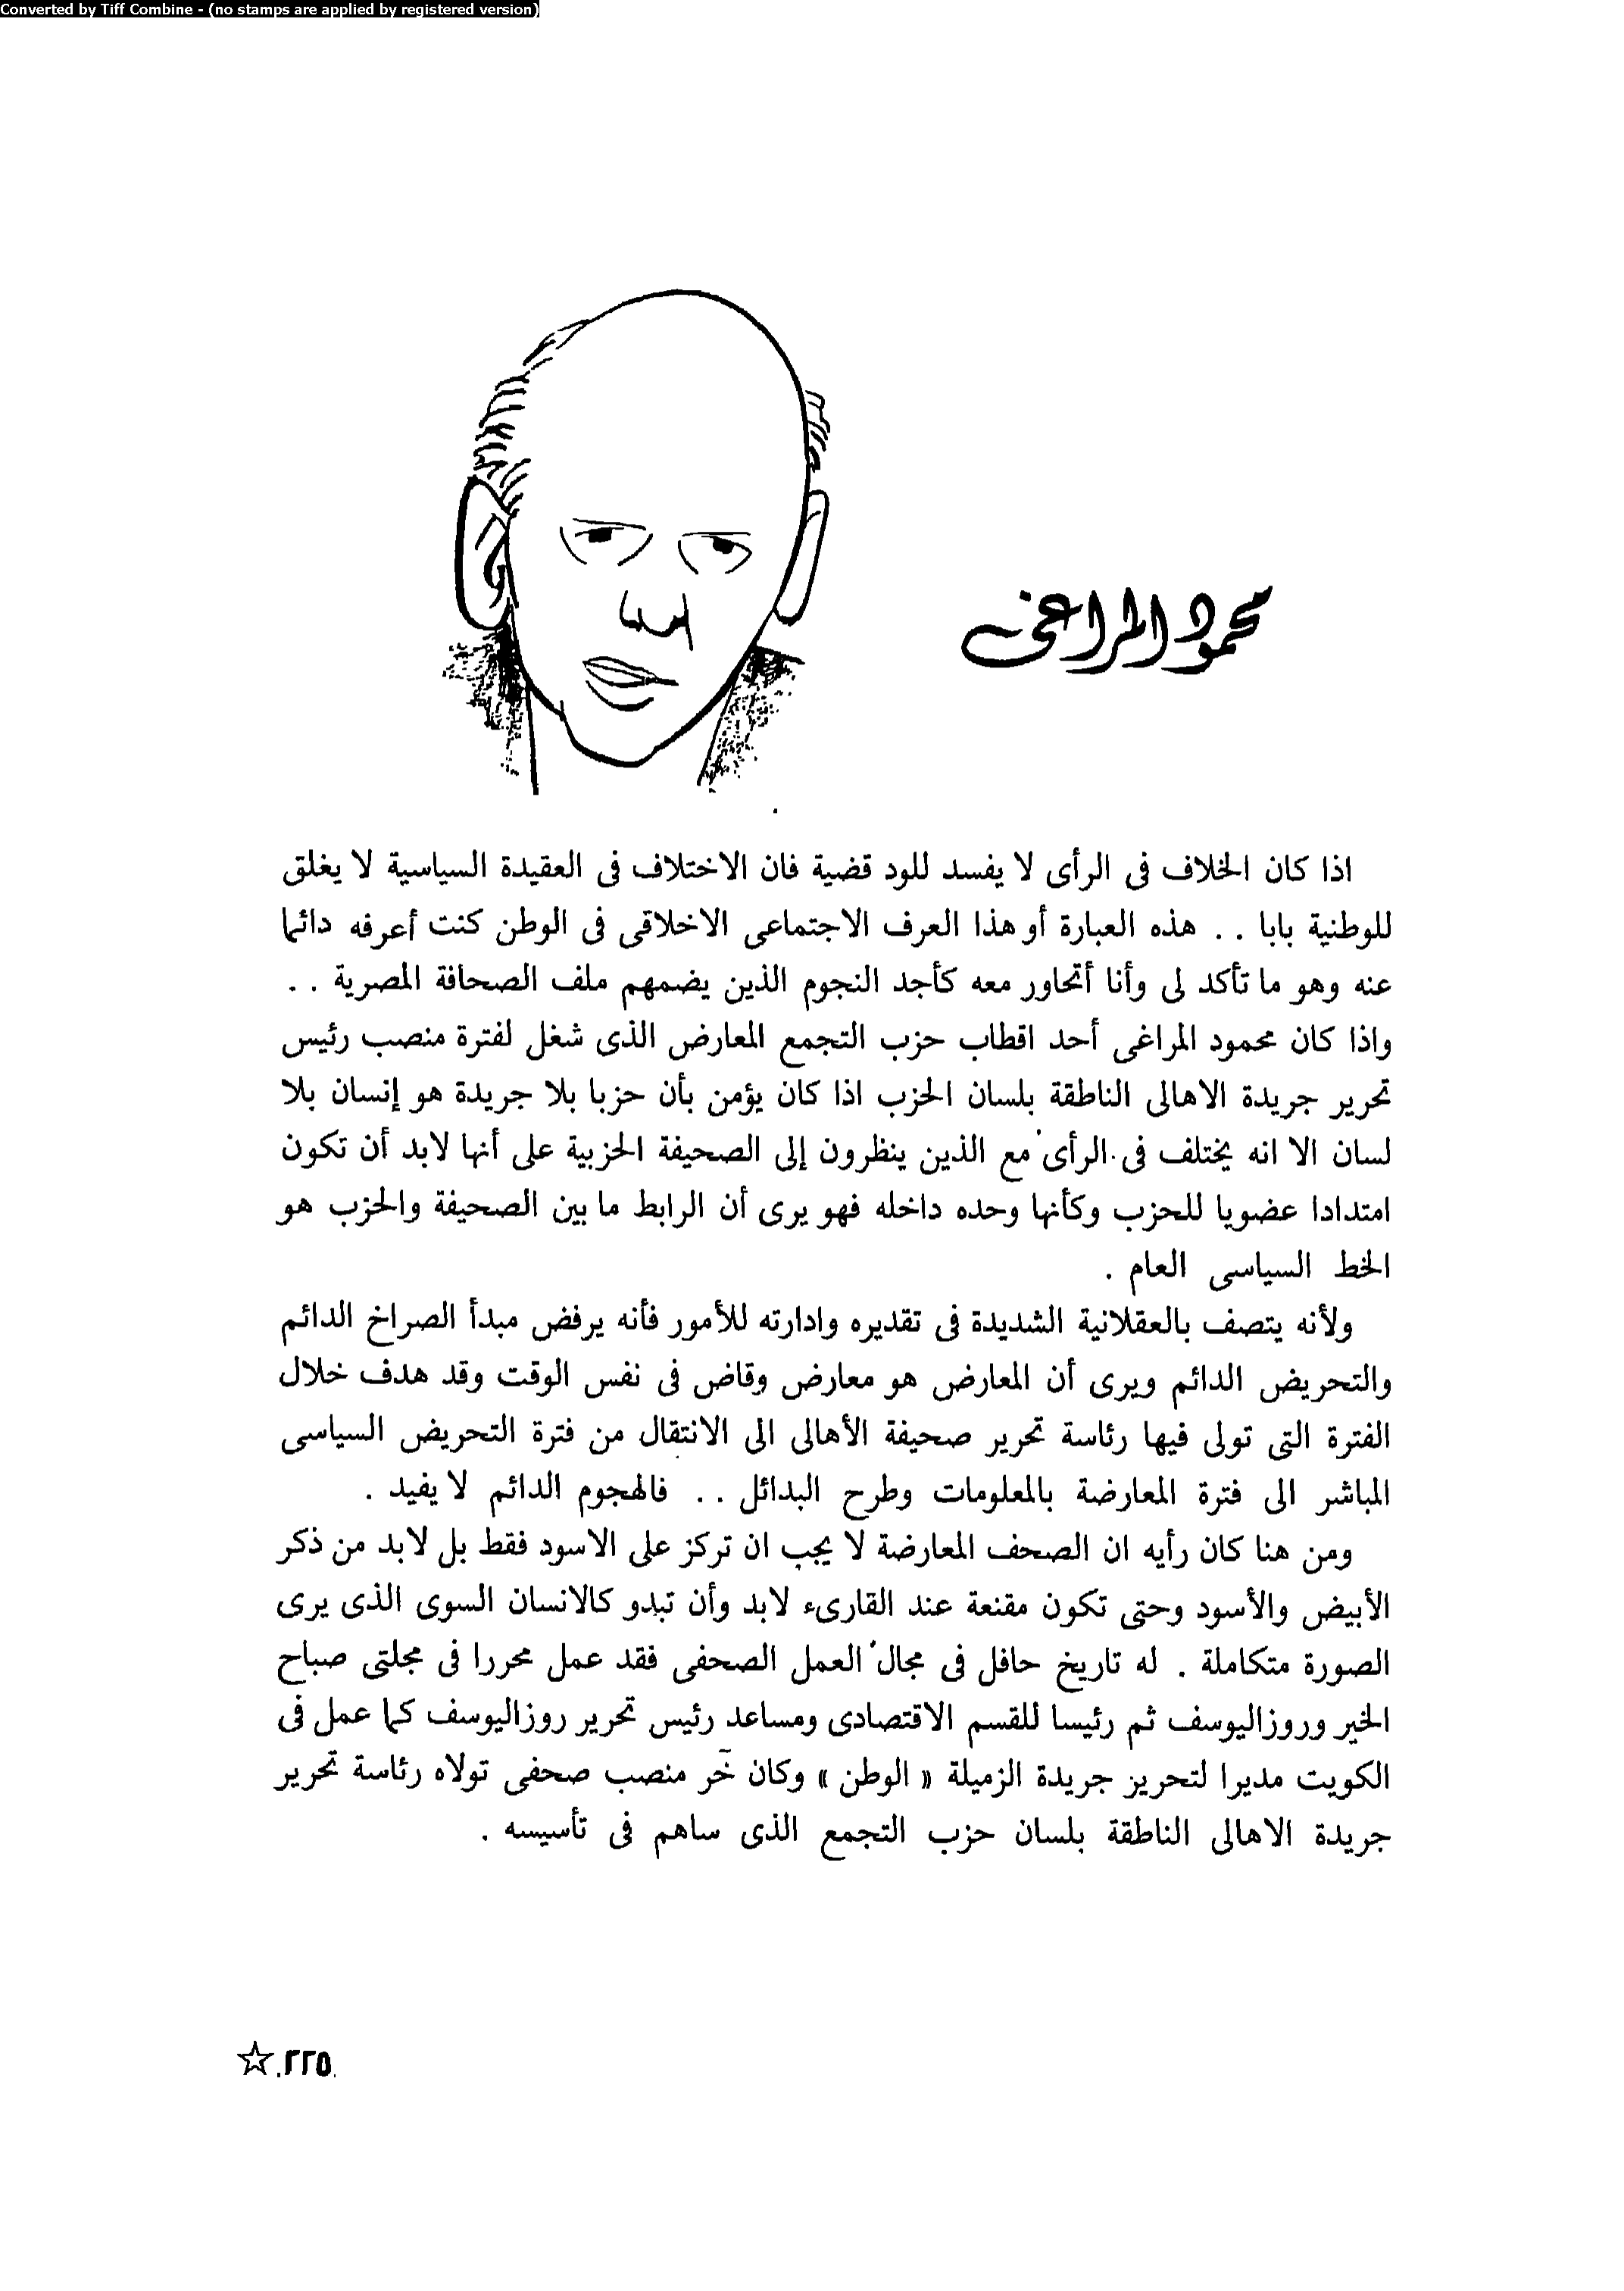 Converted by Tiff Combine - (no stamps are applied by registered version)
محمود المراغى
اذا كان الخلاف فى الرأى لا يفسد للود قضية فان الاختلاف فى العقيدة السياسية لا يغلق
للوطنية بابا .. هذه العبارة أو هذا العرف الاجتماعى الاخلاقى فى الوطن كنت أعرفه دائما
عنه وهو ما تأكد لى وأنا أتحاور معه كأجد النجوم الذين يضمهم ملف الصحافة المصرية ..
واذا كان محمود المراغى أحد اقطاب حزب التجمع المعارض الذى شغل لفترة منصب رئيس
تحرير جريدة الاهالى الناطقة بلسان الحزب اذا كان يؤمن بأن حزبا بلا جريدة هو إنسان بلا
لسان الا انه يختلف فى الرأى مع الذين ينظرون إلى الصحيفة الحزبية على أنها لابد أن تكون
امتدادا عضويا للحزب وكأنها وحده داخله فهو يرى أن الرابط ما بين الصحيفة والحزب هو
الخط السياسى العام .
ولأنه يتصف بالعقلانية الشديدة فى تقديره وادارته للأمور فأنه يرفض مبدأ الصراخ الدائم
والتحريض الدائم ويرى أن المعارض هو معارض وقاض فى نفس الوقت وقد هدف خلال
الفترة التى تولى فيها رئاسة تحرير صحيفة الأهالى الى الانتقال من فترة التحريض السياسى
المباشر الى فترة المعارضة بالمعلومات وطرح البدائل .. فالهجوم الدائم لا يفيد .
ومن هنا كان رأيه ان الصحف المعارضة لا يجب ان تركز على الاسود فقط بل لابد من ذكر
الأبيض والأسود وحتى تكون مقنعة عند القارىء لابد وأن تبدو كالانسان السوى الذى يرى
الصورة متكاملة . له تاريخ حافل فى مجال العمل الصحفى فقد عمل محررا فى مجلتى صباح
الخير وروزاليوسف ثم رئيسا للقسم الاقتصادى ومساعد رئيس تحرير روزاليوسف كما عمل فى
الكويت مديرا لتحريز جريدة الزميلة « الوطن » وكان خٓر منصب صحفى تولاه رئاسة تحرير
جريدة الاهالى الناطقة بلسان حزب التجمع الذى ساهم فى تأسيسه .
☆ .٢٢٥.